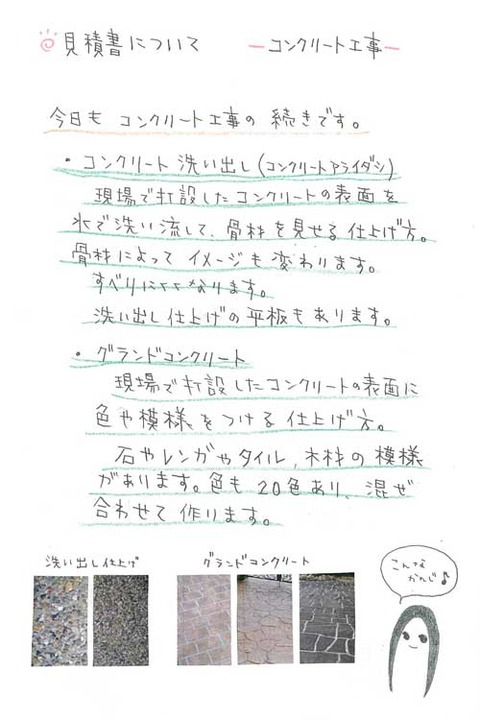 見積書について ーコンクリート工事ー
今日も コンクリート工事の 続きです。
・コンクリート 洗い出し(コンクリートアライダシ)
現場で打設したコンクリートの表面を
水で洗い流して、骨材を見せる仕上げ方。
骨材によって イメージも 変わります。
すべりにくくなります。
洗い出し仕上げの平板もあります。
・グランドコンクリート
現場で打設したコンクリートの表面に
色や模様をつける仕上げ方。
石やレンガやタイル、木材の模様
があります。色も 20色あり、混ぜ
合わせて 作ります。
洗い出し仕上げ グランドコンクリート
こんな
かんじ♪